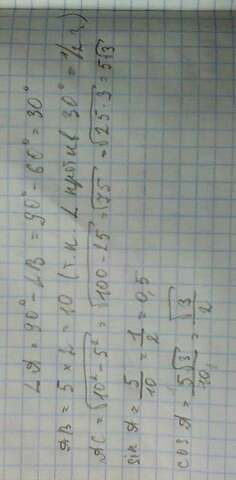 ∠A = 90° - ∠B = 90° - 60° = 30°
AB = 5 × 2 = 10 (т.к. ∠ против 30° = 1/2 г.)
AC = √10² - 5² = √100 - 25 = √75 = √25·3 = 5√3
sin A = 5/10 = 1/2 = 0,5
cos A = 5√3/10 = √3/2